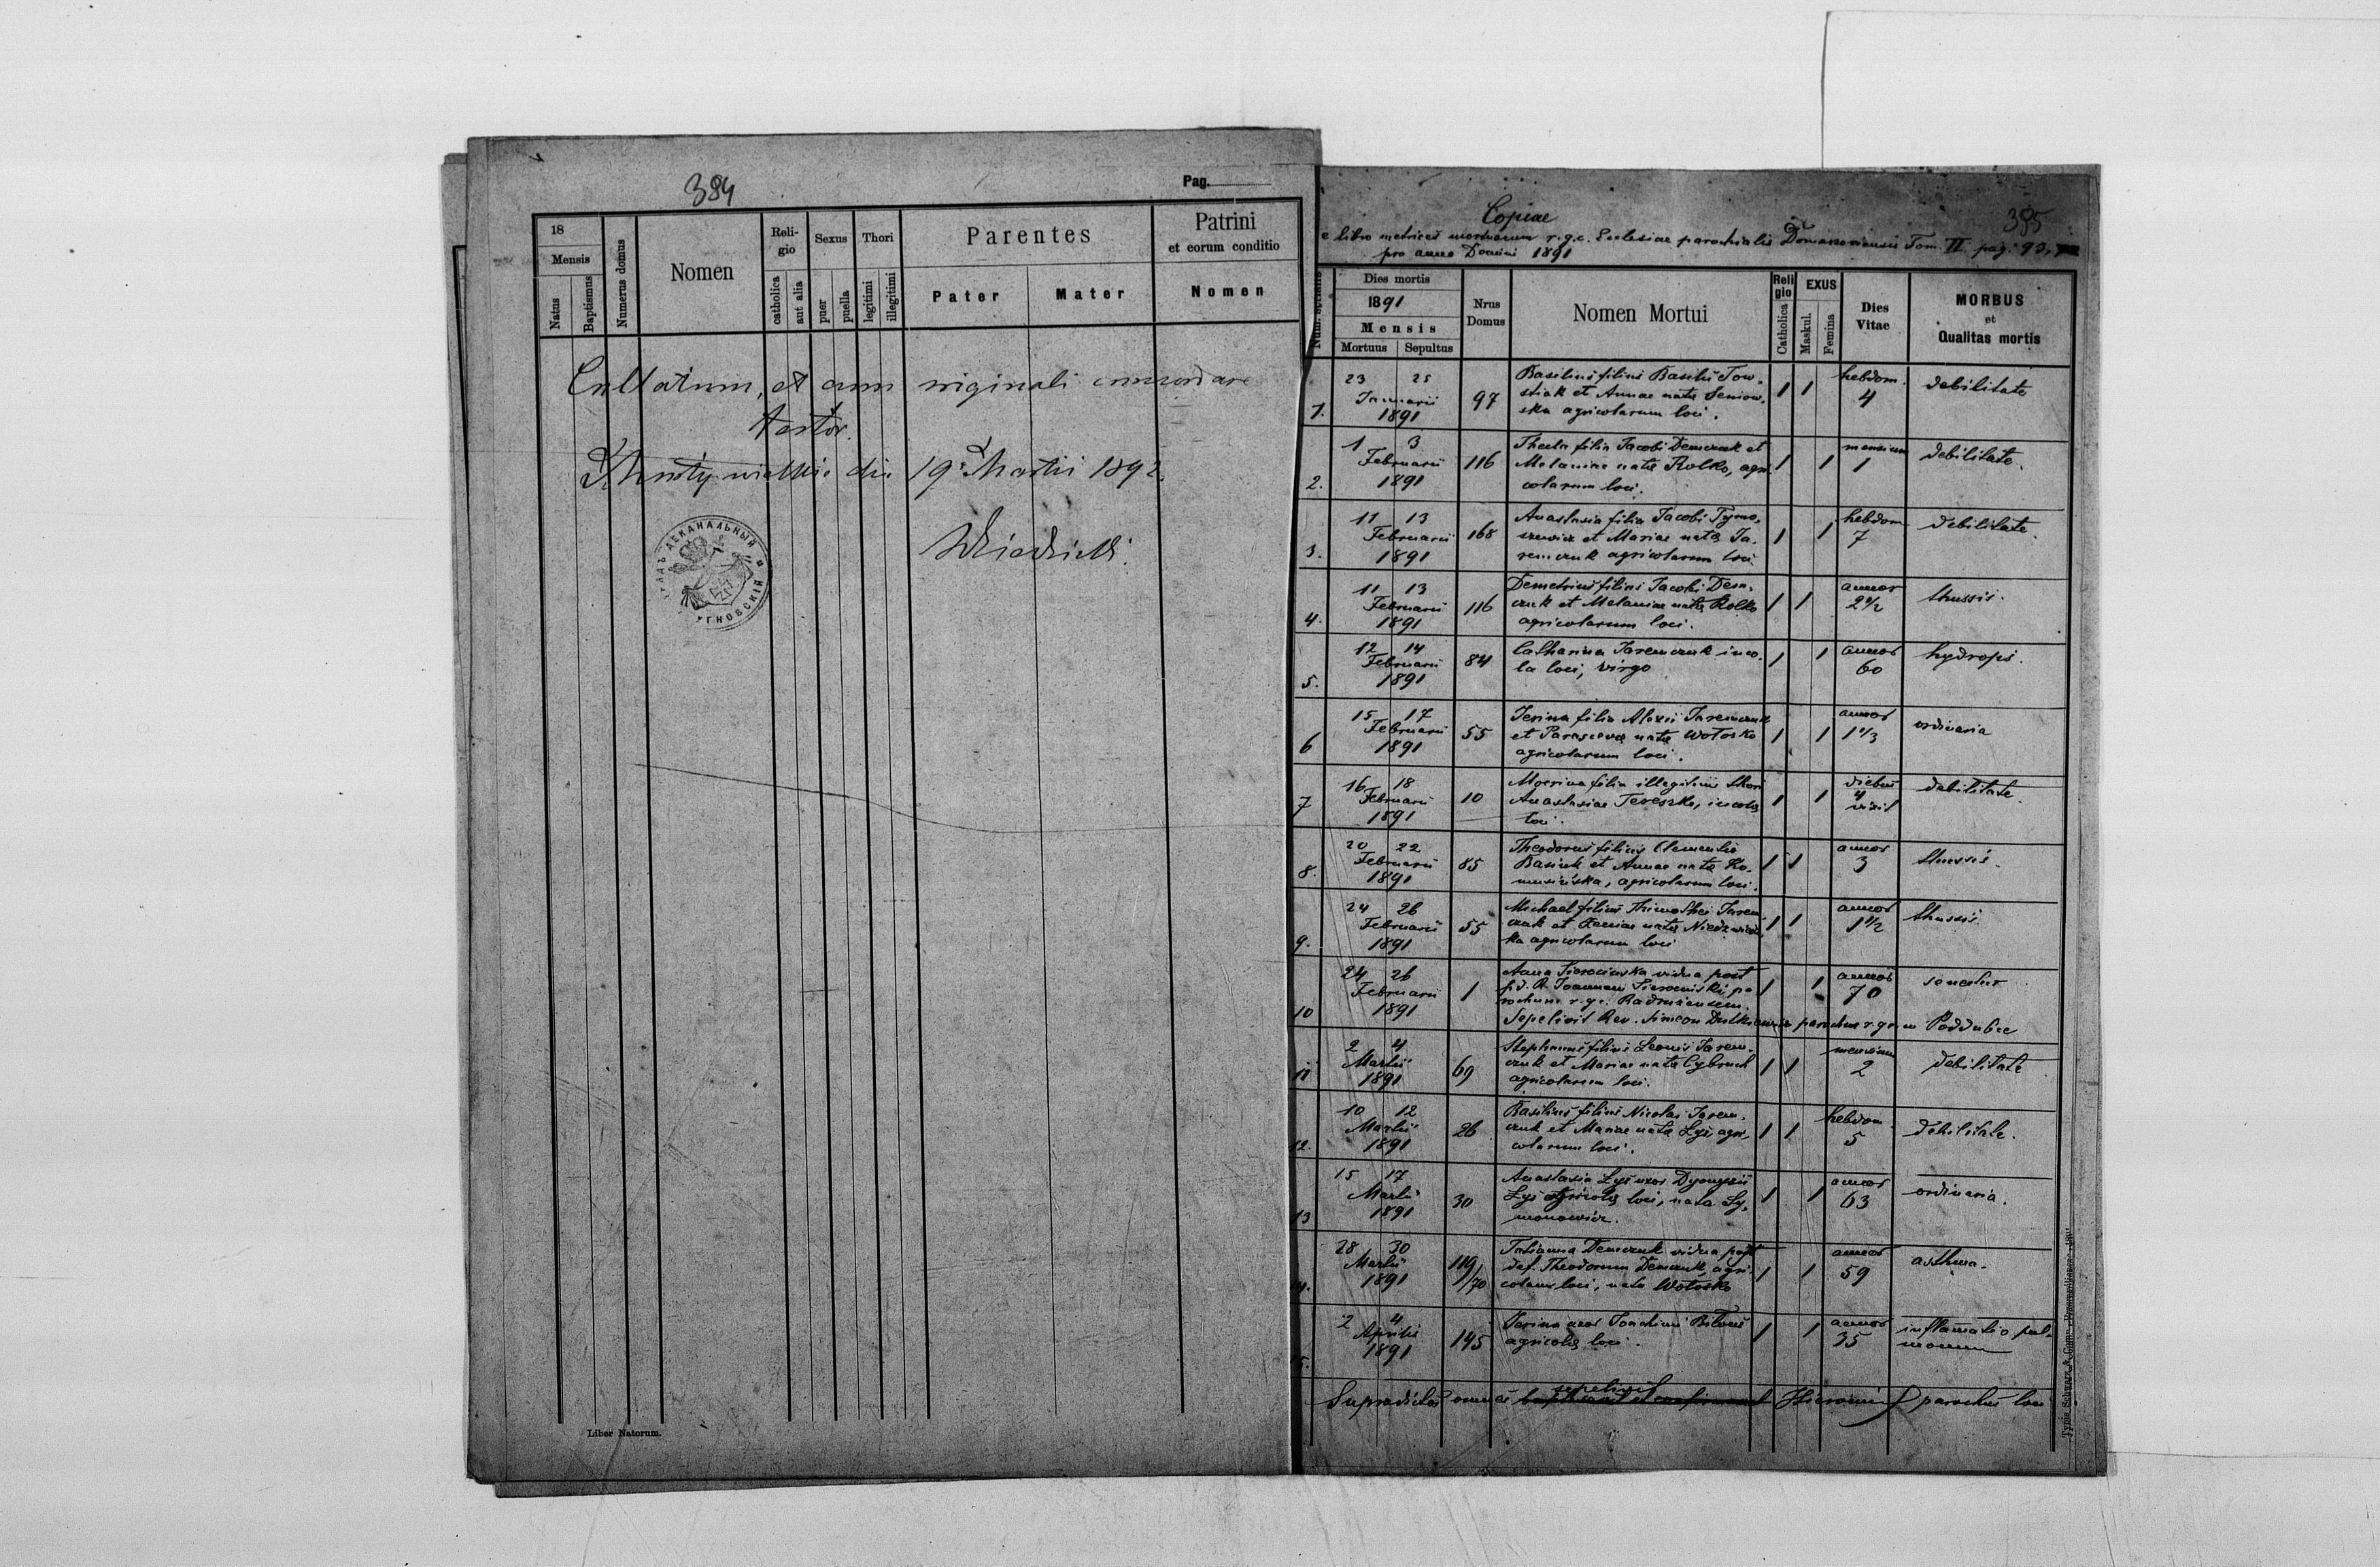 384
Pag.
18
Mensis
Natus
Baptismus
Numerus domus
Nomen
Reli-
gio
catholica
aut alia
Sexus
puer
puella
Thori
legitimi
illegitimi
Parentes
Pater
Mater
Patrini
et eorum conditio
Nomen
Collatum, et cum originali concordare
testor.
wielkie die 19 Martii 1892.
ДЕКАНАЛЬНЫЙ
Liber Natorum.
385
Copiae
e libro metrices mortuorum r.g.c. Ecclesiae parochialis Tom. II pag. 93.
pro anno Domini 1891
Dies mortis
1891
Mensis
Mortuus
Sepultus
Nrus
Domus
Nomen Mortui
Reli
gio
Catholica
EXUS
Maskul.
Femina
Dies
Vitae
MORBUS
et
Qualitas mortis
1.
23 25
Januarii
1891
97
Basilius filius Basilii Tow-
stiak et Annae nata Seniow-
ska agricolarum loci.
1 1
hebdom.
4
debilitate
2.
1 3
Februarii
1891
116
Thecla filia Jacobi Demczuk et
Melaniae nata Rolko, agri
colarum loci.
1 1
mensium
1
debilitate.
3.
11 13
Februarii
1891
168
Anastasia filia Jacobi Tymo-
szewicz et Mariae nata Ja-
remczuk agricolarum loci.
1 1
hebdom
7
debilitate.
4.
11 13
Februarii
1891
116
Demetrius filius Jacobi Dem-
czuk et Melaniae nata Rolko
agricolarum loci.
1 1
annor
2 1/2
thussis.
5.
12 14
Februarii
1891
84
Catharina Jaremczuk inco-
la loci, virgo
1 1
annor
60
hydrops.
6
15 17
Februarii
1891
55
Ierina filia Alexii Jaremczuk
et Parasceva nata Wołosko
agricolarum loci.
1 1
annor
1 1/3
ordinaria
7
16 18
Februarii
1891
10
Mocrina filia illegitimi thori
Anastasiae Tereszko, incola
loci.
1 1
diebus
4
vixit
debilitate.
8.
20 22
Februarii
1891
85
Theodorus filius Clementis
Basiuk et Annae nata Ko-
agricolarum loci.
1 1
annor
3
thussis.
9.
24 26
Februarii
1891
55
Michael filius Thimothei Jarem-
czuk et Xeniae nata
ka agricolarum loci
1 1
annor
1 1/2
thussis.
10
24 26
Februarii
1891
1
Anna vidua post
p.d. R. Joannem pa-
rochum r.g.c.
Sepelivit Rev. Simeon parochus r.g.c. in Poddubce
1 1
annor
70
11
2 4
Martii
1891
69
Stephanus filius Leonis Jarem-
czuk et Mariae nata Cybruch
agricolarum loci.
1 1
mensium
2
debilitate
12.
10 12
Martii
1891
26
Basilius filius Nicolai Jarem-
czuk et Mariae nata Łyś agri-
colarum loci.
1 1
hebdom.
5
debilitate.
13
15 17
Martii
1891
30
Anastasia Łyś uxor Dyonyzii
Łyś agricola loci, nata Sy-
monowicz.
1 1
annor
63
ordinaria.
14.
28 30
Martii
1891
119/70
Tatianna Demczuk vidua post
def. Theodorum Demczuk agri-
colam loci, nata Wołosko
1 1
annor
59
asthma.
15.
2 4
Aprilis
1891
145
Ierina uxor Joachimi
agricola loci.
1 1
annor
35
inflamatio pul-
monum
sepelivit
Supradictos omnes parochus loci